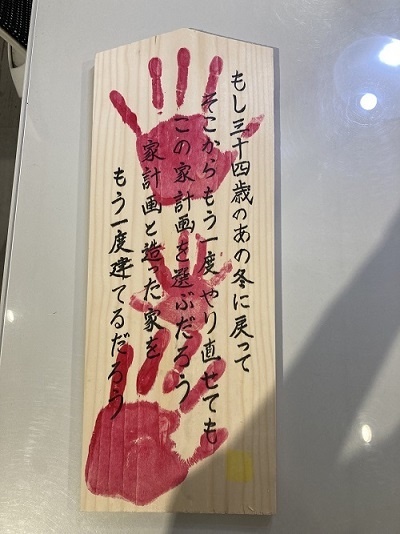 もし三十四歳のあの冬に戻って
そこからもう一度やり直せても
この家計画を選ぶだろう
家計画と造った家を
もう一度建てるだろう